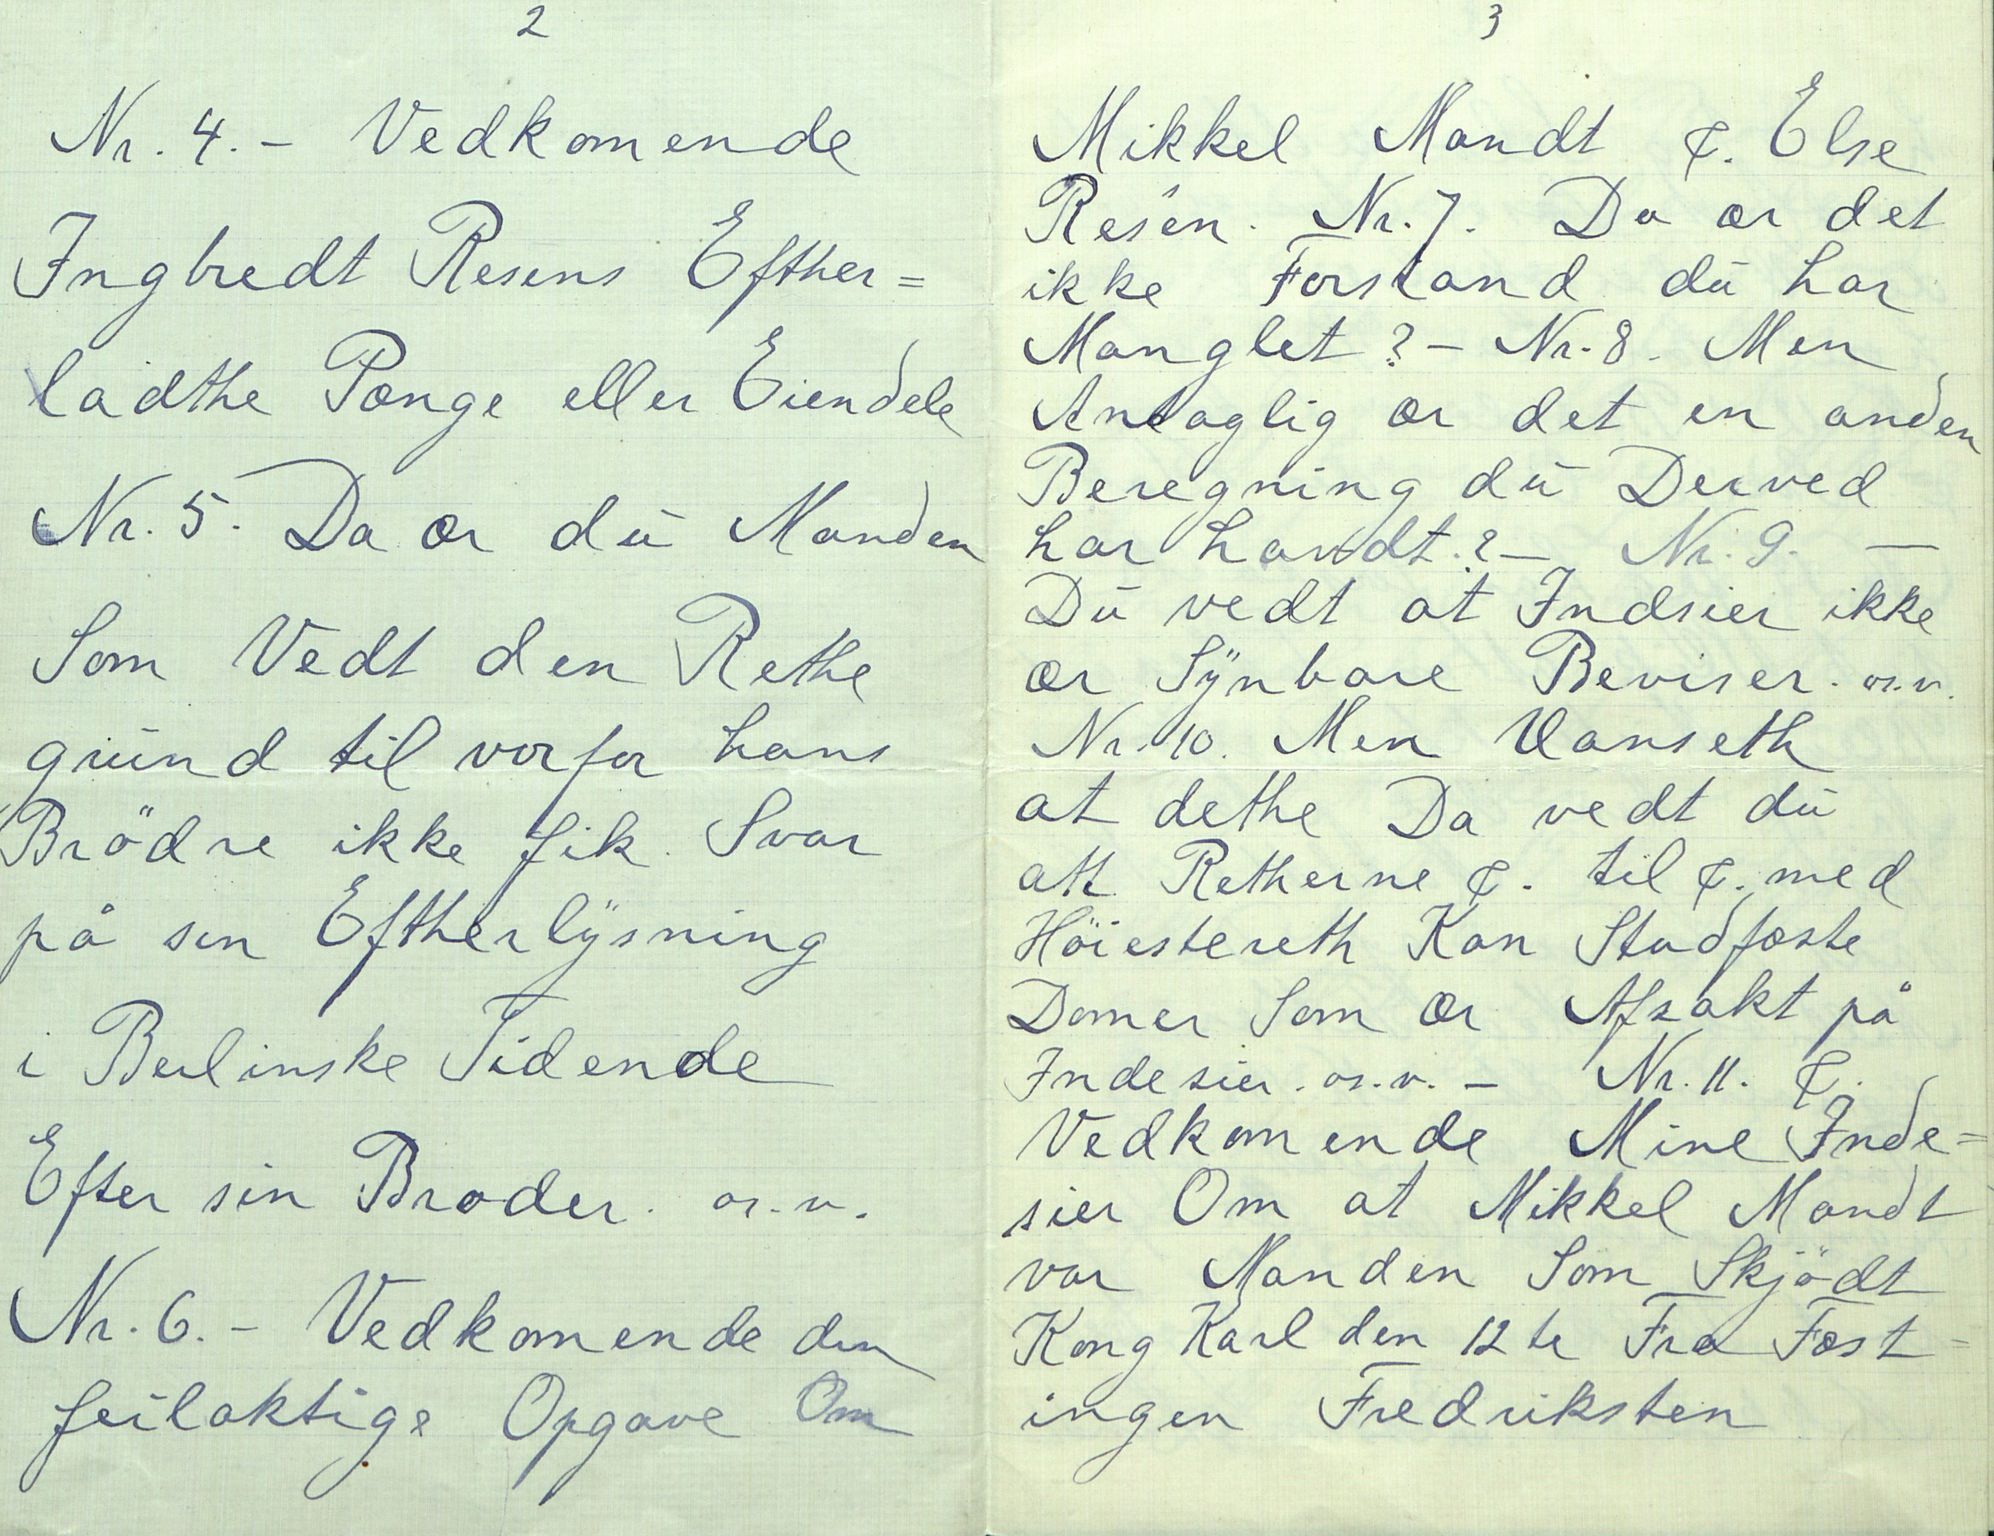 2
Nr. 4. - Vedkomende
Ingbredt Resens Efther=
ladthe Pænge eller Eiendele
Nr. 5. Da ær du Manden
Som Vedt den Rethe
grund til vorfor hans
Brödre ikke fik Svar
på sin Eftherlÿsning
i Berlinske Tidende
Efter sin Broder. os.v.
Nr. 6. - Vedkomende din
feilaktige Opgave Om
3
Mikkel Mandt &. Else
Resen. Nr. 7. Da ær det
ikke Forstand du har
Manglet? - Nr. 8. Men
Antaglig ær det en anden
Beregning du Derved
har havdt.? - Nr. 9. -
Du vedt at Indsier ikke
ær Sÿnbare Beviser. os.v.
Nr. 10. Men Uanseth
at dethe Da vedt du
att Retherne &. til &. med
Höiestereth Kan Stadfæste
Domer Som Ær Afsakt på
Indesier. os.v. - Nr. 11. &.
Vedkomende Mine Inde=
sier Om at Mikkel Mandt
var Manden Som Skjödt
Kong Karl den 12te Fra Fæst=
ingen Fredriksten